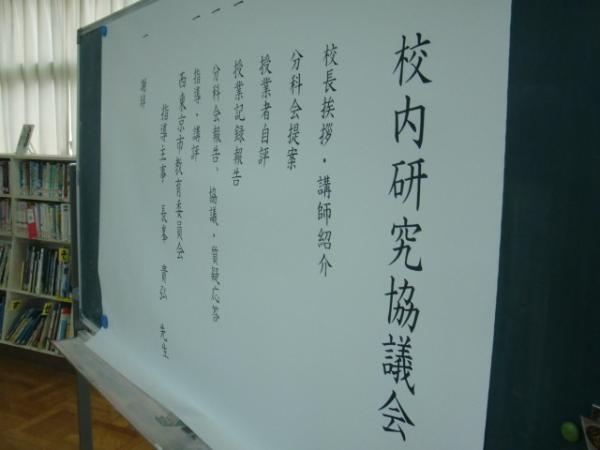 校内研究協議会
校長挨拶・講師紹介
分科会提案
授業者自評
一 授業記録報告
一 分科会報告、協議・質疑応答
一 指導・講評
西東京市教育委員会
指導主事 長峯 貴弘 先生
一 謝辞